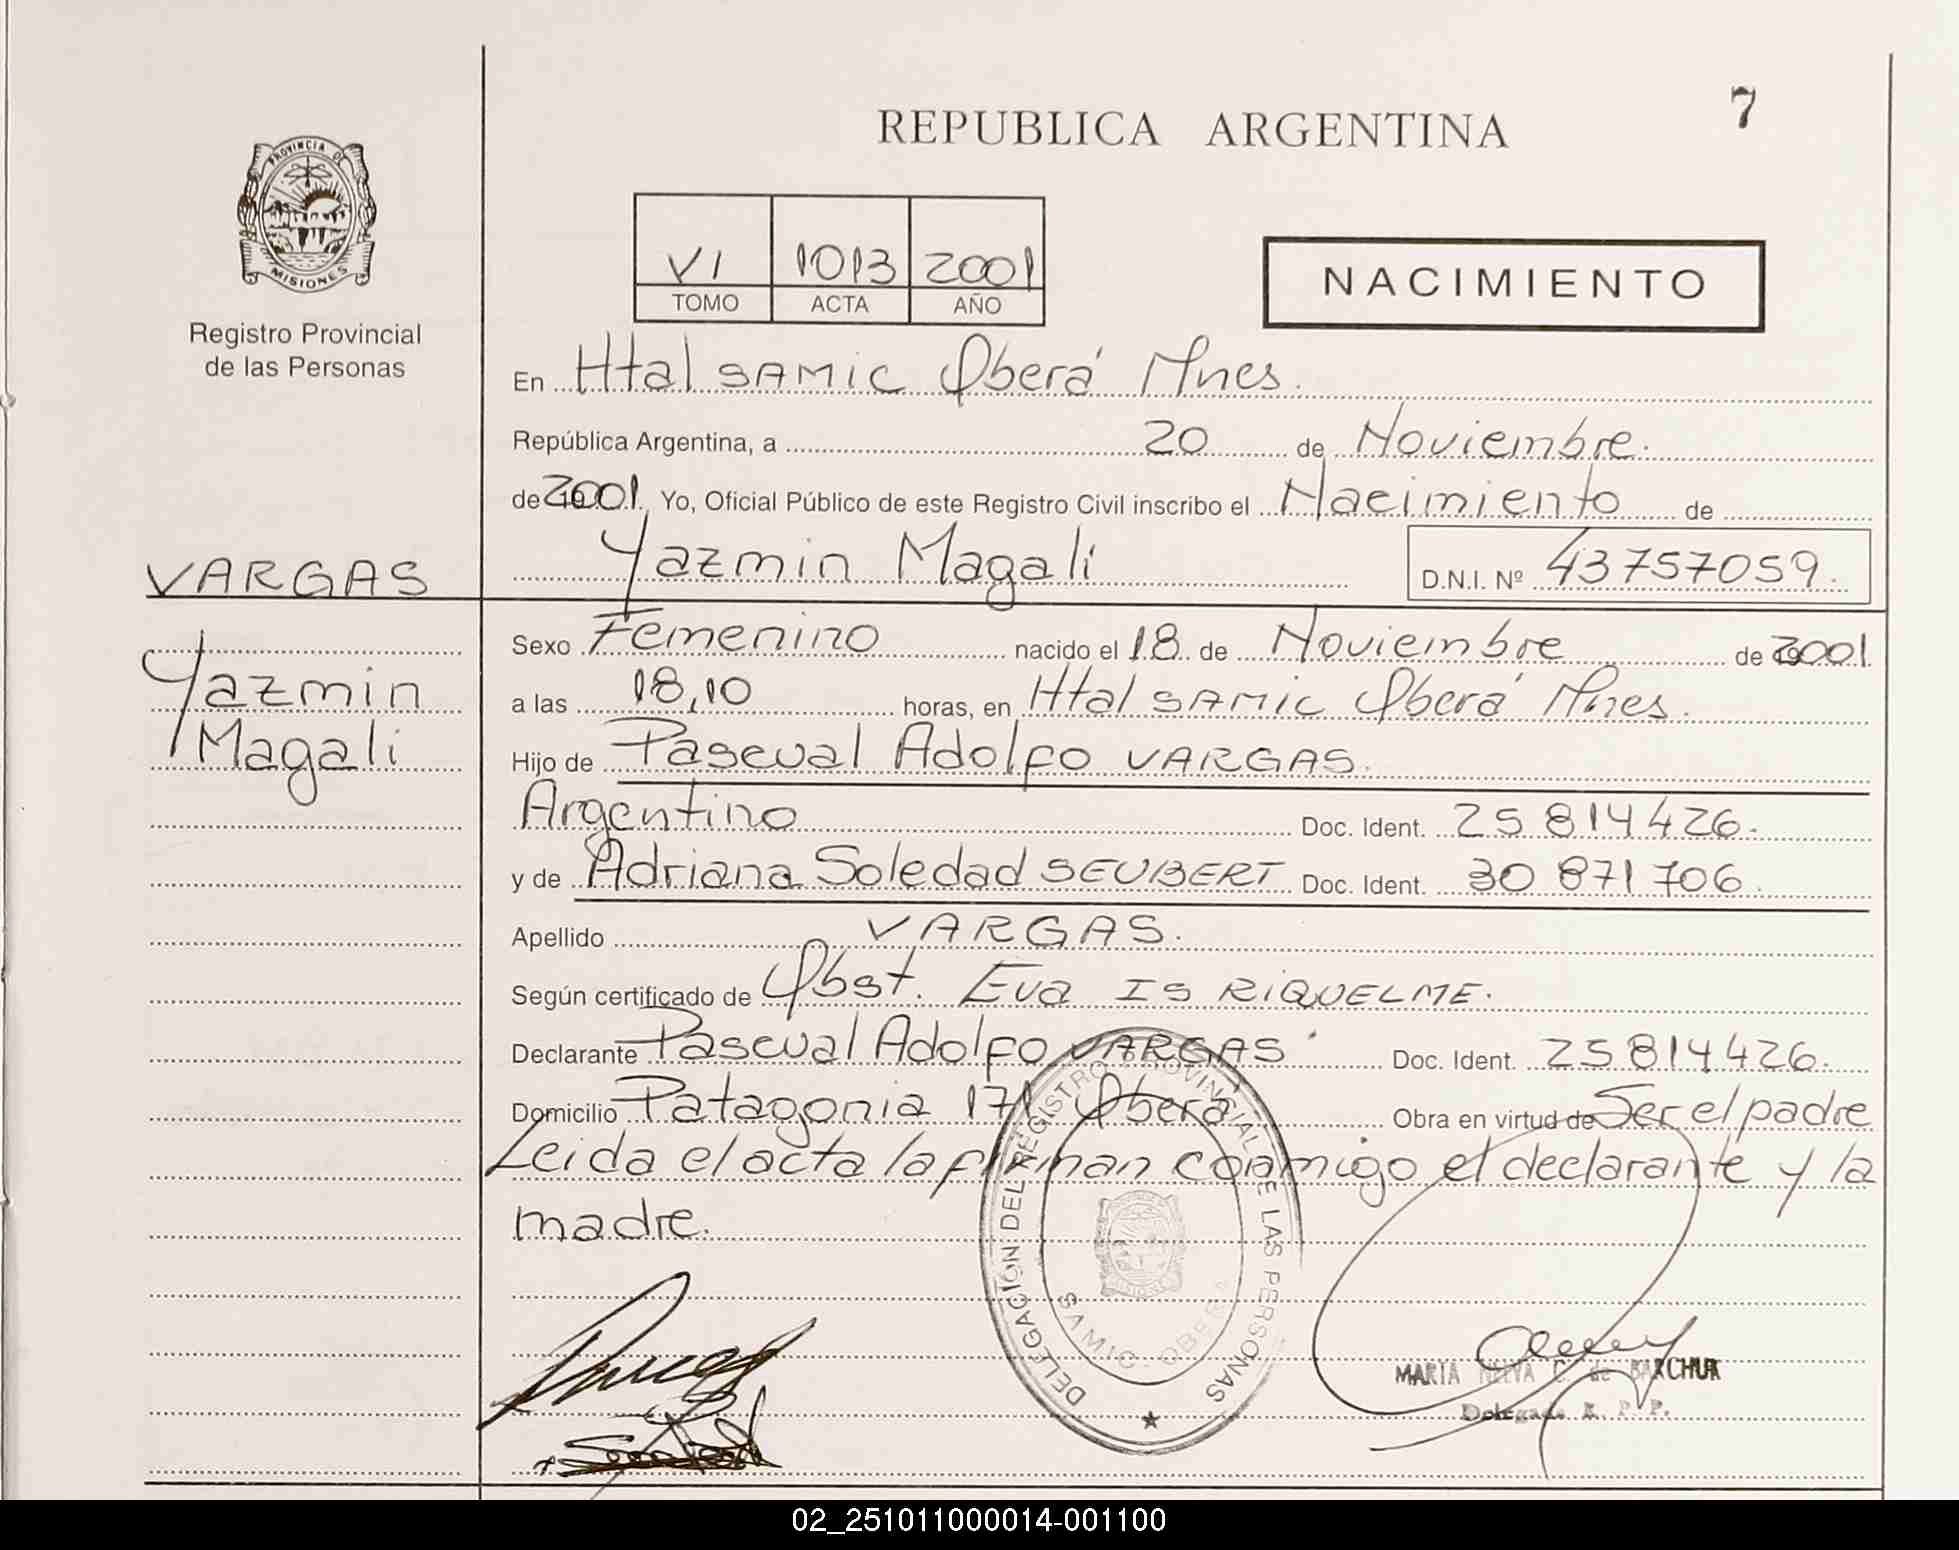 REPUBLICA ARGENTINA
7
PROVINCIA DE
MISIONES
Registro Provincial
de las Personas
VI 1013 2001
TOMO ACTA AÑO
NACIMIENTO
En Htal SAMIC Oberá Mnes.
República Argentina, a 20 de Noviembre.
de 2001. Yo, Oficial Público de este Registro Civil inscribo el Nacimiento de
Yazmin Magali D.N.I. Nº 43757059.
VARGAS
Yazmin
Magali
Sexo Femenino nacido el 18 de Noviembre de 2001.
a las 18,10 horas, en Htal SAMIC Oberá Mnes.
Hijo de Pascual Adolfo VARGAS.
Argentino Doc. Ident. 25 814 426.
y de Adriana Soledad SEUBERT Doc. Ident. 30 871 706.
Apellido VARGAS.
Según certificado de Obst. Eva Is RIQUELME.
Declarante Pascual Adolfo VARGAS Doc. Ident. 25 814 426.
Domicilio Patagonia 171 Oberá Obra en virtud de Ser el padre
Leida el acta la firman conmigo el declarante y la
madre.
DELEGACIÓN DEL REGISTRO PROVINCIAL DE LAS PERSONAS
SAMIC - OBERA
MARIA C. de BARCHUK
Delegada R. P. P.
02_251011000014-001100